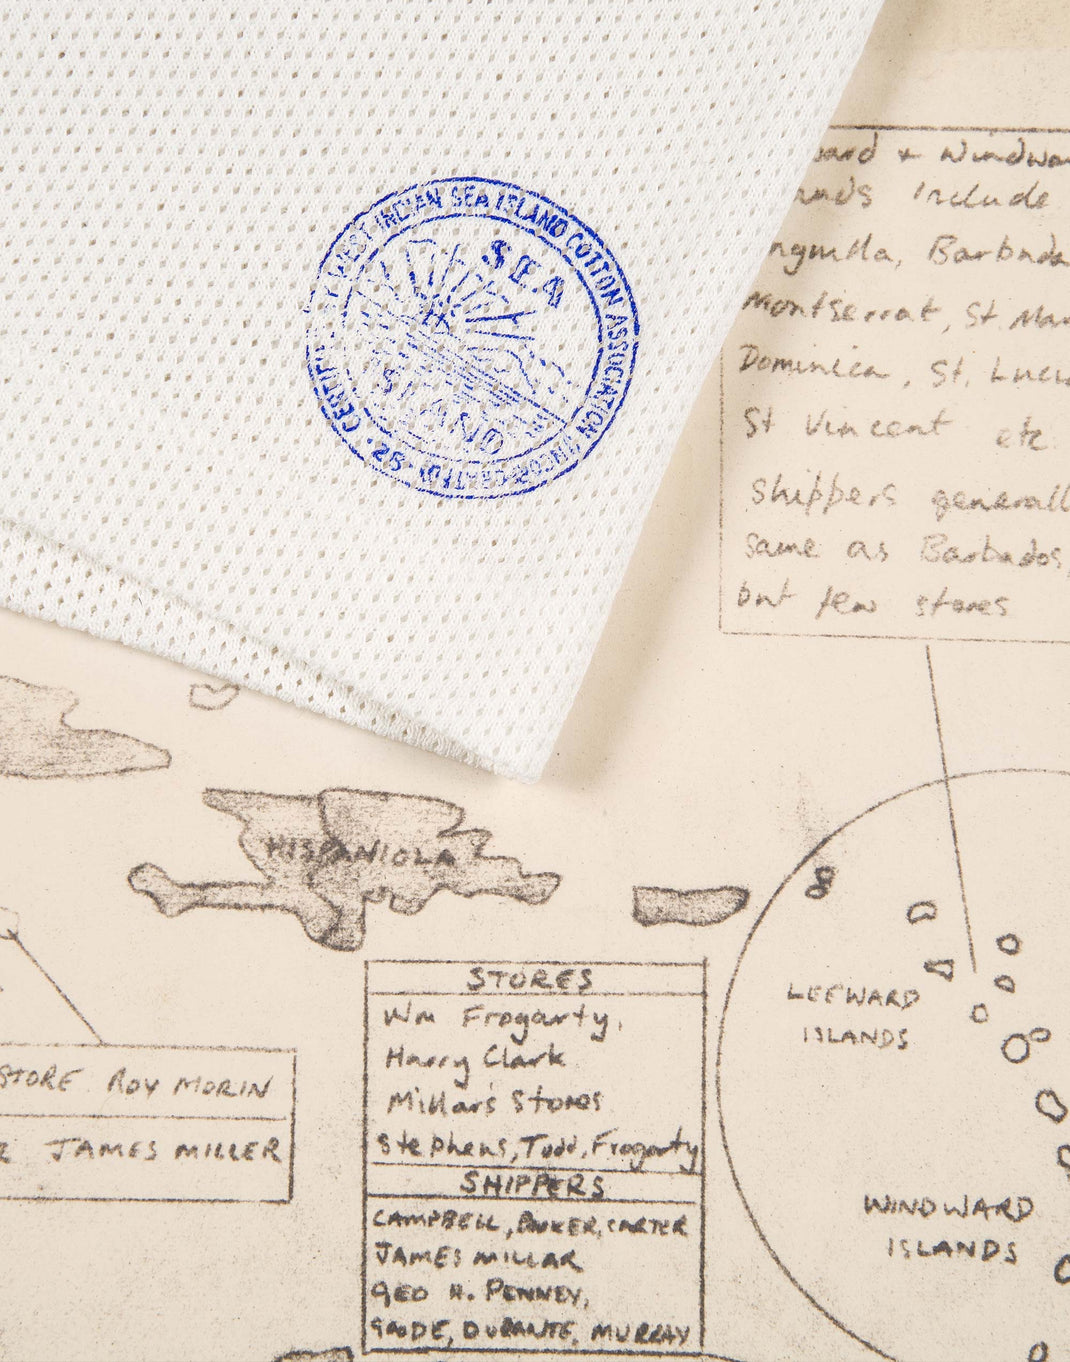 WEST INDIAN SEA ISLAND COTTON ASSOCIATION
SEA
ISLAND
& Windwa
Include
Barbuda
Montserrat, St. Mar
Dominica, St. Lucia
St Vincent etc
Shippers generall
same as Barbados,
but few stores
HISPANIOLA
STORES
Wm Frogarty,
Harry Clark
Millar's Stores
Stephens, Todd, Frogarty
SHIPPERS
CAMPBELL, BOOKER, CARTER
JAMES MILLAR
GEO H. PENNEY,
GOODE, DURANTE, MURRAY
STORE ROY MORIN
JAMES MILLER
LEEWARD
ISLANDS
WINDWARD
ISLANDS